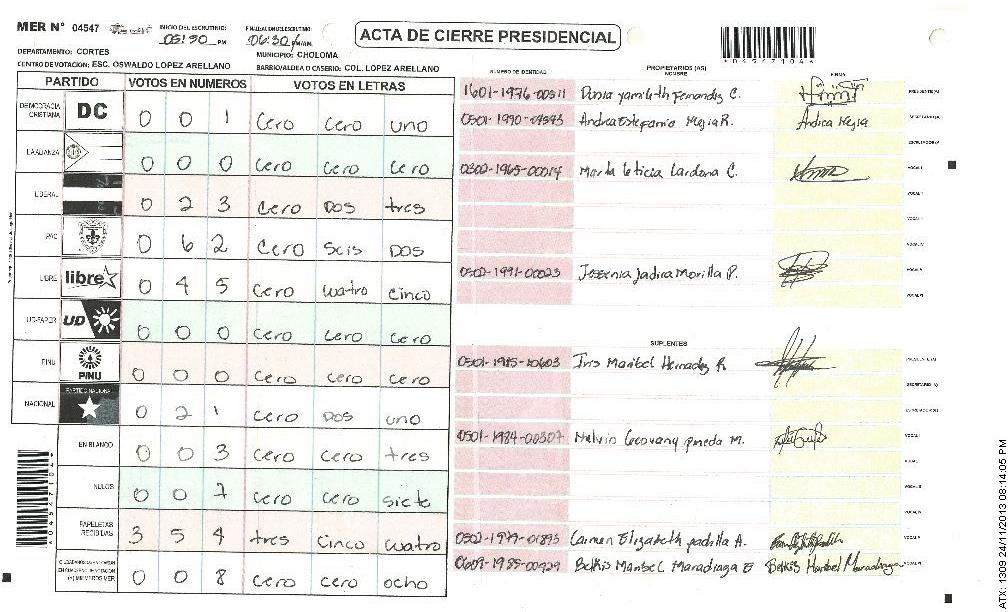 MER N° 04547 INICIO DEL ESCRUTINIO: 05:50 PM FINALIZACION DEL ESCRUTINIO: 06:50 PM/AM.
ACTA DE CIERRE PRESIDENCIAL
*045471044*
DEPARTAMENTO: CORTES MUNICIPIO: CHOLOMA
CENTRO DE VOTACION: ESC. OSWALDO LOPEZ ARELLANO BARRIO/ALDEA O CASERIO: COL. LOPEZ ARELLANO
PARTIDO VOTOS EN NUMEROS VOTOS EN LETRAS
DEMOCRACIA CRISTIANA DC 0 0 1 cero cero uno
LA ALIANZA 0 0 0 cero cero cero
LIBERAL 0 2 3 cero Dos tres
PAC 0 6 2 cero Seis Dos
LIBRE libre 0 4 5 cero cuatro cinco
UD-FAPER UD 0 0 0 cero cero cero
PINU PINU 0 0 0 cero cero cero
NACIONAL PARTIDO NACIONAL 0 2 1 cero Dos uno
EN BLANCO 0 0 3 cero cero tres
NULOS 0 0 7 cero cero siete
PAPELETAS RECIBIDAS 3 5 4 tres cinco cuatro
0 0 8 cero cero ocho
NUMERO DE IDENTIDAD PROPIETARIOS (AS) NOMBRE FIRMA
1601-1976-00511 Dunia yamileth fernandez C. PRESIDENTE(A)
0501-1990-04593 Andrea Estefania Mejia R. Andrea Mejia SECRETARIO(A)
ESCRUTADOR(A)
0502-1965-00014 Marta leticia Cardona C. VOCAL I
VOCAL II
VOCAL III
VOCAL IV
0502-1991-00023 Jessenia Jadira Morilla P. VOCAL V
VOCAL VI
SUPLENTES
0501-1985-10603 Iris Maribel Hernadez R. PRESIDENTE(A)
SECRETARIO(A)
ESCRUTADOR(A)
0501-1984-00307 Melvin Geovany pineda M. VOCAL I
VOCAL II
VOCAL III
VOCAL IV
0502-1979-01893 Carmen Elizabeth padilla A. VOCAL V
0609-1985-00929 Belkis Maribel Maradiaga E Belkis Maribel Maradiaga VOCAL VI
*045471044*
ATX: 1309 24/11/2013 08:14:05 PM